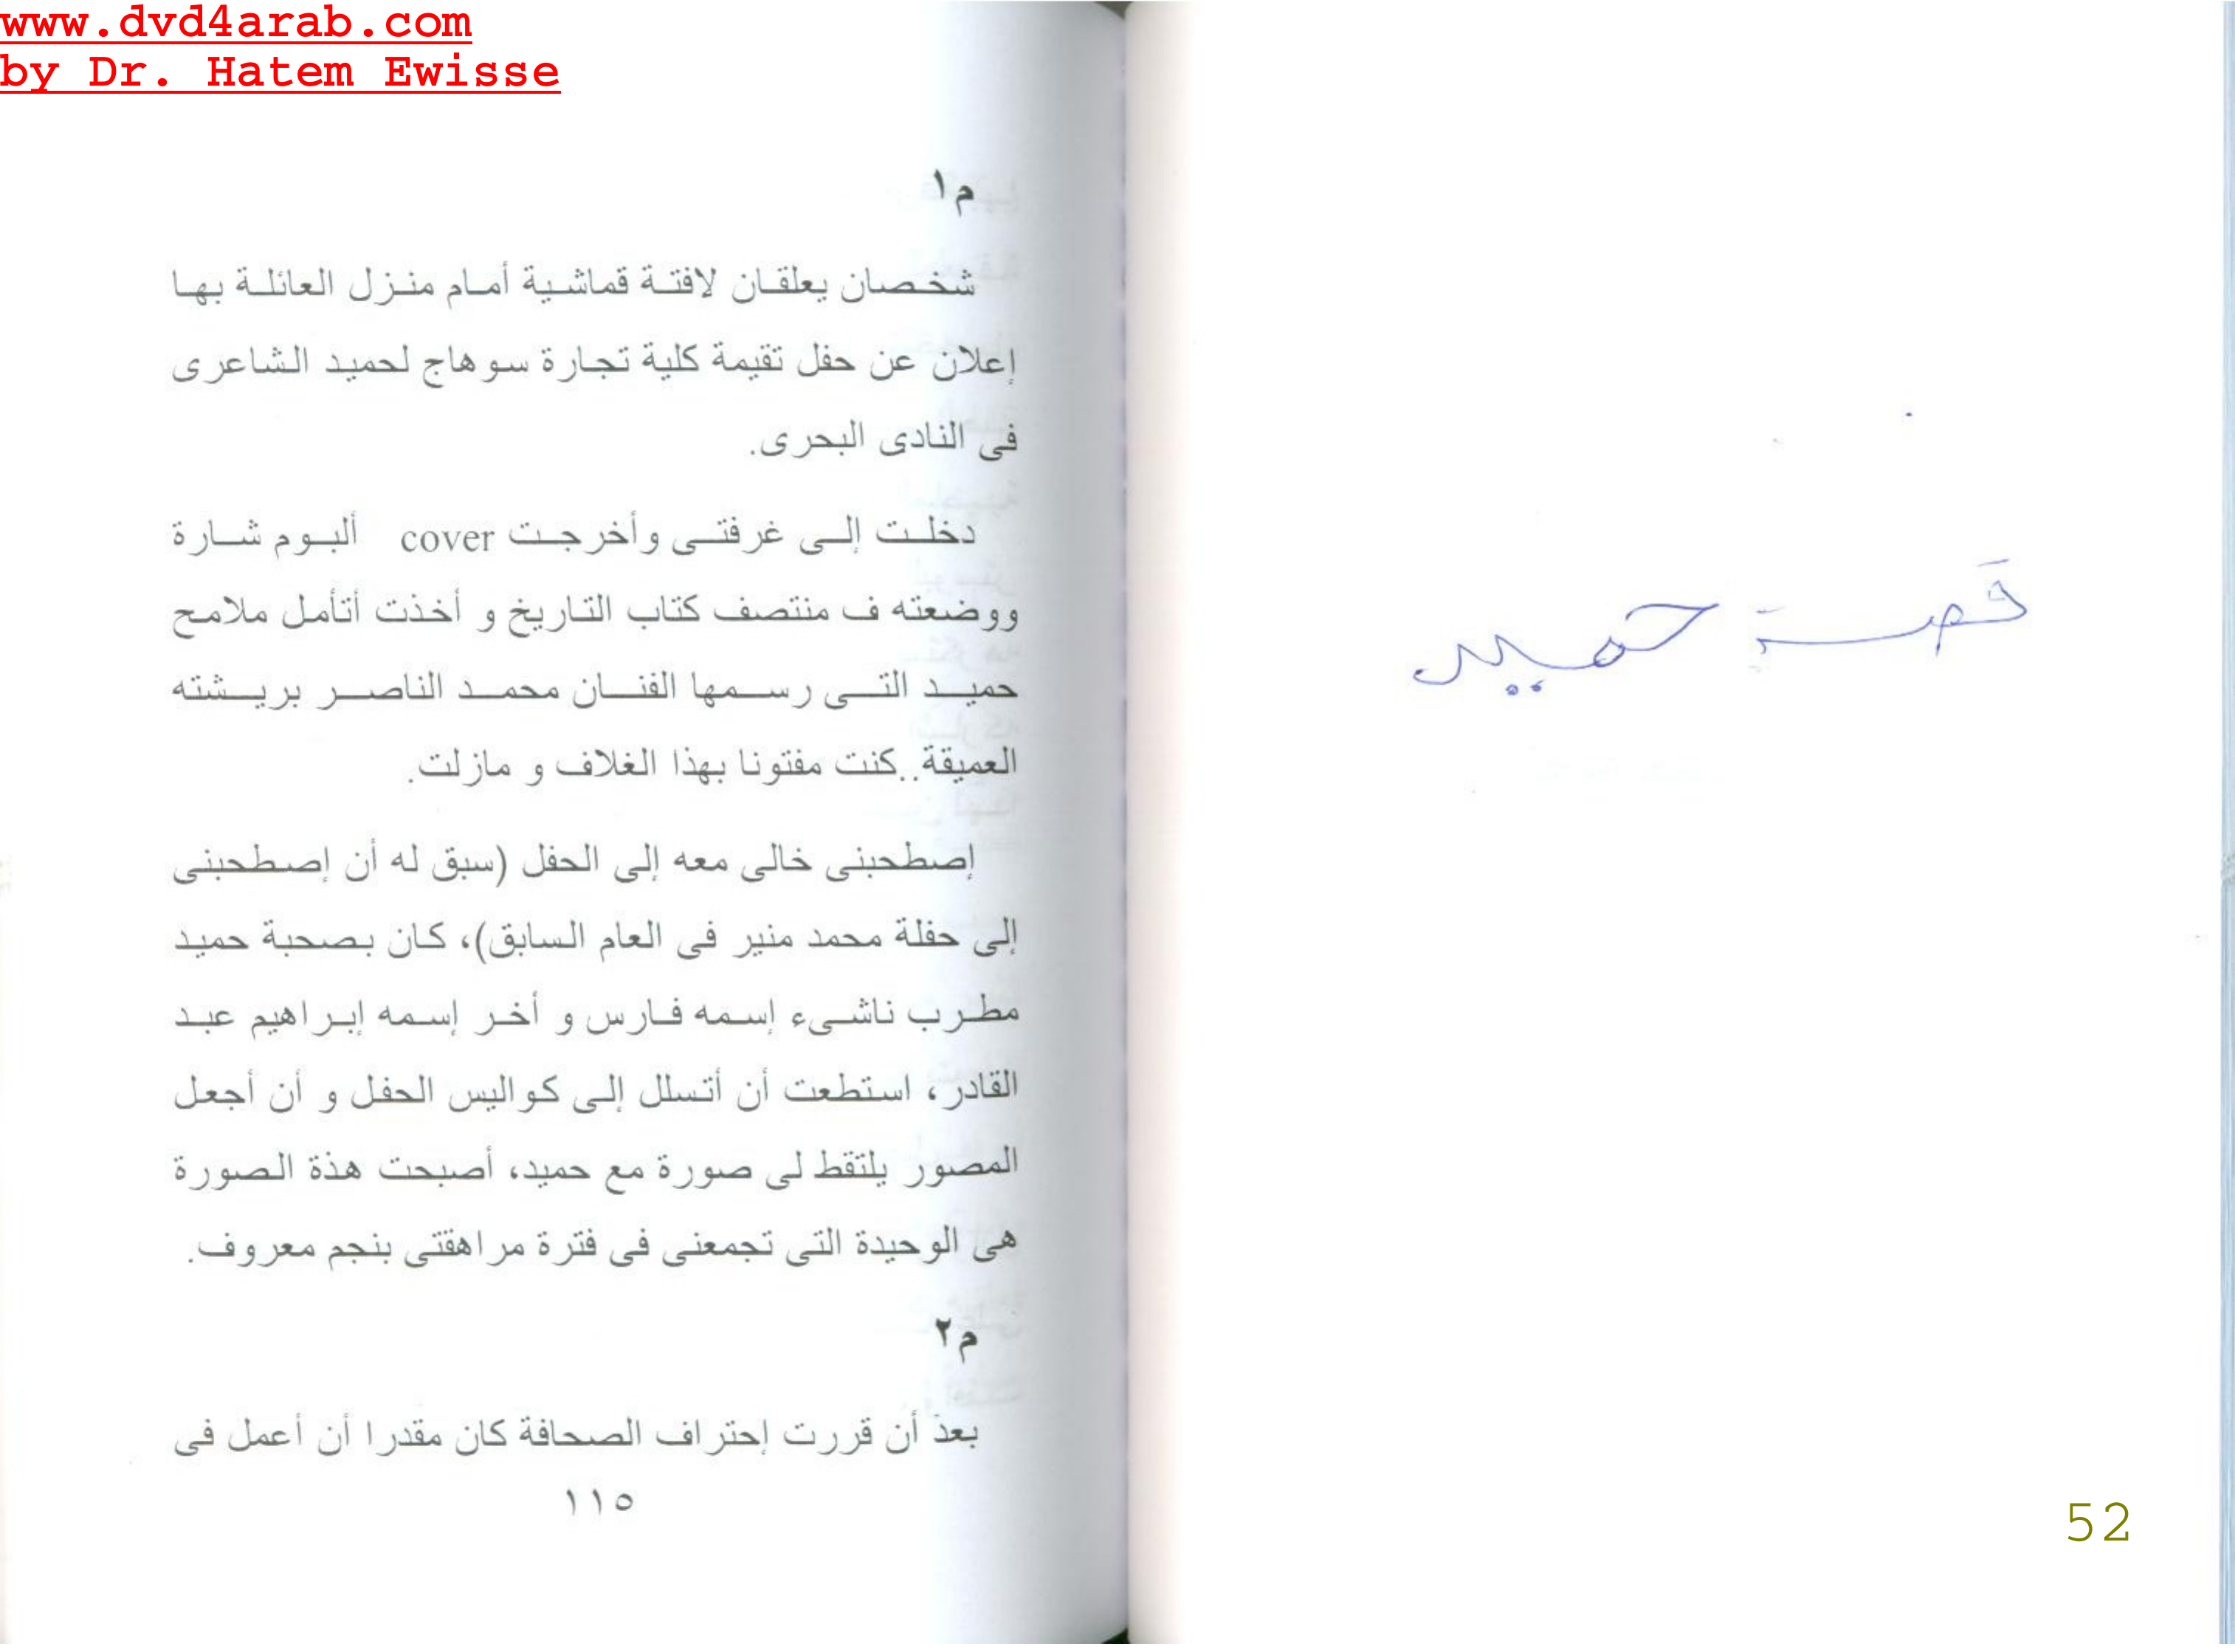 www.dvd4arab.com
by Dr. Hatem Ewisse
قصة حميد
52
م١
شخصان يعلقان لافتة قماشية أمام منزل العائلة بها
إعلان عن حفل تقيمة كلية تجارة سوهاج لحميد الشاعرى
فى النادى البحرى.
دخلت إلى غرفتى وأخرجت cover ألبوم شارة
ووضعته ف منتصف كتاب التاريخ و أخذت أتأمل ملامح
حميد التى رسمها الفنان محمد الناصر بريشته
العميقة..كنت مفتونا بهذا الغلاف و مازلت.
إصطحبنى خالى معه إلى الحفل (سبق له أن إصطحبنى
إلى حفلة محمد منير فى العام السابق)، كان بصحبة حميد
مطرب ناشىء إسمه فارس و أخر إسمه إبراهيم عبد
القادر، استطعت أن أتسلل إلى كواليس الحفل و أن أجعل
المصور يلتقط لى صورة مع حميد، أصبحت هذة الصورة
هى الوحيدة التى تجمعنى فى فترة مراهقتى بنجم معروف.
م٢
بعد أن قررت إحتراف الصحافة كان مقدرا أن أعمل فى
١١٥